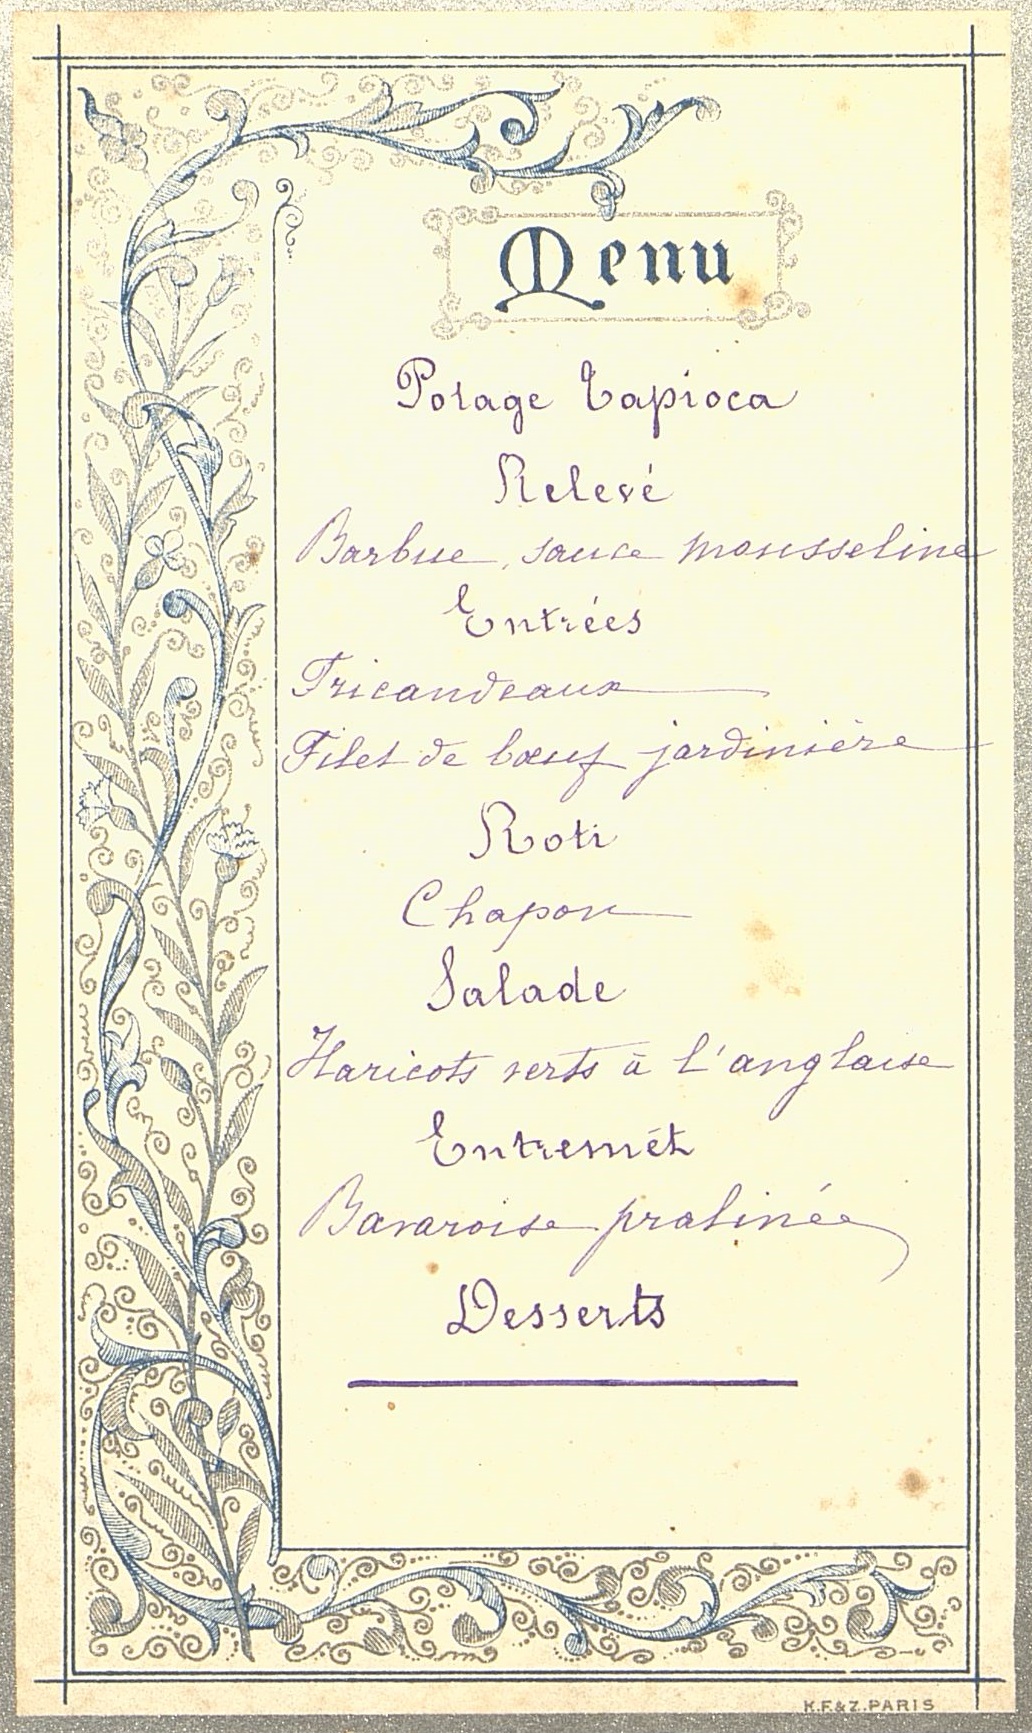 Menu
Potage Tapioca
Relevé
Barbue, sauce mousseline
Entrées
Fricandeaux
Filet de bœuf jardinière
Roti
Chapon
Salade
Haricots verts à l'anglaise
Entremêt
Bavaroise pralinée
Desserts
K.F.&Z.PARIS